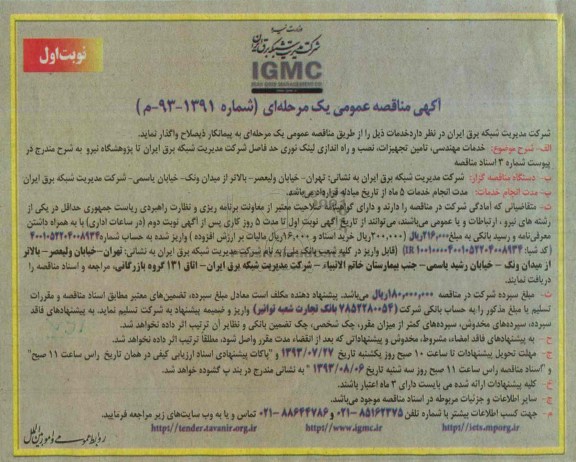 وزارت نیرو
شرکت مدیریت شبکه برق ایران
نوبت اول
IGMC
IRAN GRID MANAGEMENT CO.
آگهی مناقصه عمومی یک مرحله‌ای (شماره ۱۳۹۱-۹۳-م)
شرکت مدیریت شبکه برق ایران در نظر دارد خدمات ذیل را از طریق مناقصه عمومی یک مرحله‌ای به پیمانکار ذیصلاح واگذار نماید.
الف- شرح موضوع: خدمات مهندسی، تامین تجهیزات، نصب و راه اندازی لینک نوری حد فاصل شرکت مدیریت شبکه برق ایران تا پژوهشگاه نیرو به شرح مندرج در
پیوست شماره ۳ اسناد مناقصه
ب- دستگاه مناقصه گزار: شرکت مدیریت شبکه برق ایران به نشانی: تهران- خیابان ولیعصر- بالاتر از میدان ونک- خیابان یاسمی- شرکت مدیریت شبکه برق ایران
پ- مدت انجام خدمات: مدت انجام خدمات ۵ ماه از تاریخ مبادله قرارداد می‌باشد.
ت- متقاضیانی که آمادگی شرکت در مناقصه را دارند و دارای گواهینامه صلاحیت معتبر از معاونت برنامه ریزی و نظارت راهبردی ریاست جمهوری حداقل در یکی از
رشته های نیرو، ارتباطات و یا عمومی می‌باشند، می‌توانند از تاریخ آگهی نوبت اول تا مدت ۵ روز کاری پس از آگهی نوبت دوم (در ساعات اداری) با به همراه داشتن
معرفی‌نامه و رسید بانکی به مبلغ ۲۱۶,۰۰۰ریال (۲۰۰,۰۰۰ریال خرید اسناد و ۱۶,۰۰۰ریال مالیات بر ارزش افزوده) واریز شده به حساب شماره ۴۰۰۱۰۵۲۲۰۴۰۰۸۹۳۴
(کد شبا: IR ۱۰۰۱۰۰۰۰۴۰۰۱۰۵۲۲۰۴۰۰۸۹۳۴) (قابل واریز در کلیه شعب بانک ملی) به نام شرکت مدیریت شبکه برق ایران به نشانی: تهران- خیابان ولیعصر- بالاتر
از میدان ونک - خیابان رشید یاسمی- جنب بیمارستان خاتم الانبیاء - شرکت مدیریت شبکه برق ایران- اتاق ۱۳۱ گروه بازرگانی، مراجعه و اسناد مناقصه را
دریافت نمایند.
ث- مبلغ سپرده شرکت در مناقصه ۱۸۰,۰۰۰,۰۰۰ریال می‌باشد. پیشنهاد دهنده مکلف است معادل مبلغ سپرده، تضمین‌های معتبر مطابق اسناد مناقصه و مقررات
تسلیم یا مبلغ مذکور را به حساب بانکی شرکت (۷۸۵۲۲۸۰۰۵۴ بانک تجارت شعبه توانیر) واریز و ضمیمه پیشنهاد به شرکت تسلیم نماید. به پیشنهادهای فاقد
سپرده، سپرده‌های مخدوش، سپرده‌های کمتر از میزان مقرر، چک شخصی، چک تضمین بانکی و نظایر آن ترتیب اثر داده نخواهد شد.
ج- به پیشنهادهای فاقد امضاء، مشروط، مخدوش و پیشنهاداتی که بعد از انقضاء مدت مقرر واصل شود، مطلقاً ترتیب اثر داده نخواهد شد.
ح- مهلت تحویل پیشنهادات تا ساعت ۱۰ صبح روز یکشنبه تاریخ ۱۳۹۳/۰۷/۲۷ و "پاکات پیشنهادی اسناد ارزیابی کیفی در همان تاریخ راس ساعت ۱۱ صبح"
و "اسناد مناقصه راس ساعت ۱۱ صبح روز سه شنبه تاریخ ۱۳۹۳/۰۸/۰۶" به نشانی مندرج در بند پ گشوده خواهد شد.
خ- کلیه پیشنهادات ارائه شده می بایست دارای ۳ ماه اعتبار باشند.
چ- سایر اطلاعات و جزئیات مربوطه در اسناد مناقصه موجود می‌باشد.
م- جهت کسب اطلاعات بیشتر با شماره تلفن ۸۵۱۶۲۳۷۵-۰۲۱ و ۸۸۶۴۴۷۸۶-۰۲۱ تماس و یا به وب سایت‌های زیر مراجعه فرمایید.
http//iets.mporg.ir http//www.igmc.ir http//tender.tavanir.org.ir
روابط عمومی و امور بین الملل